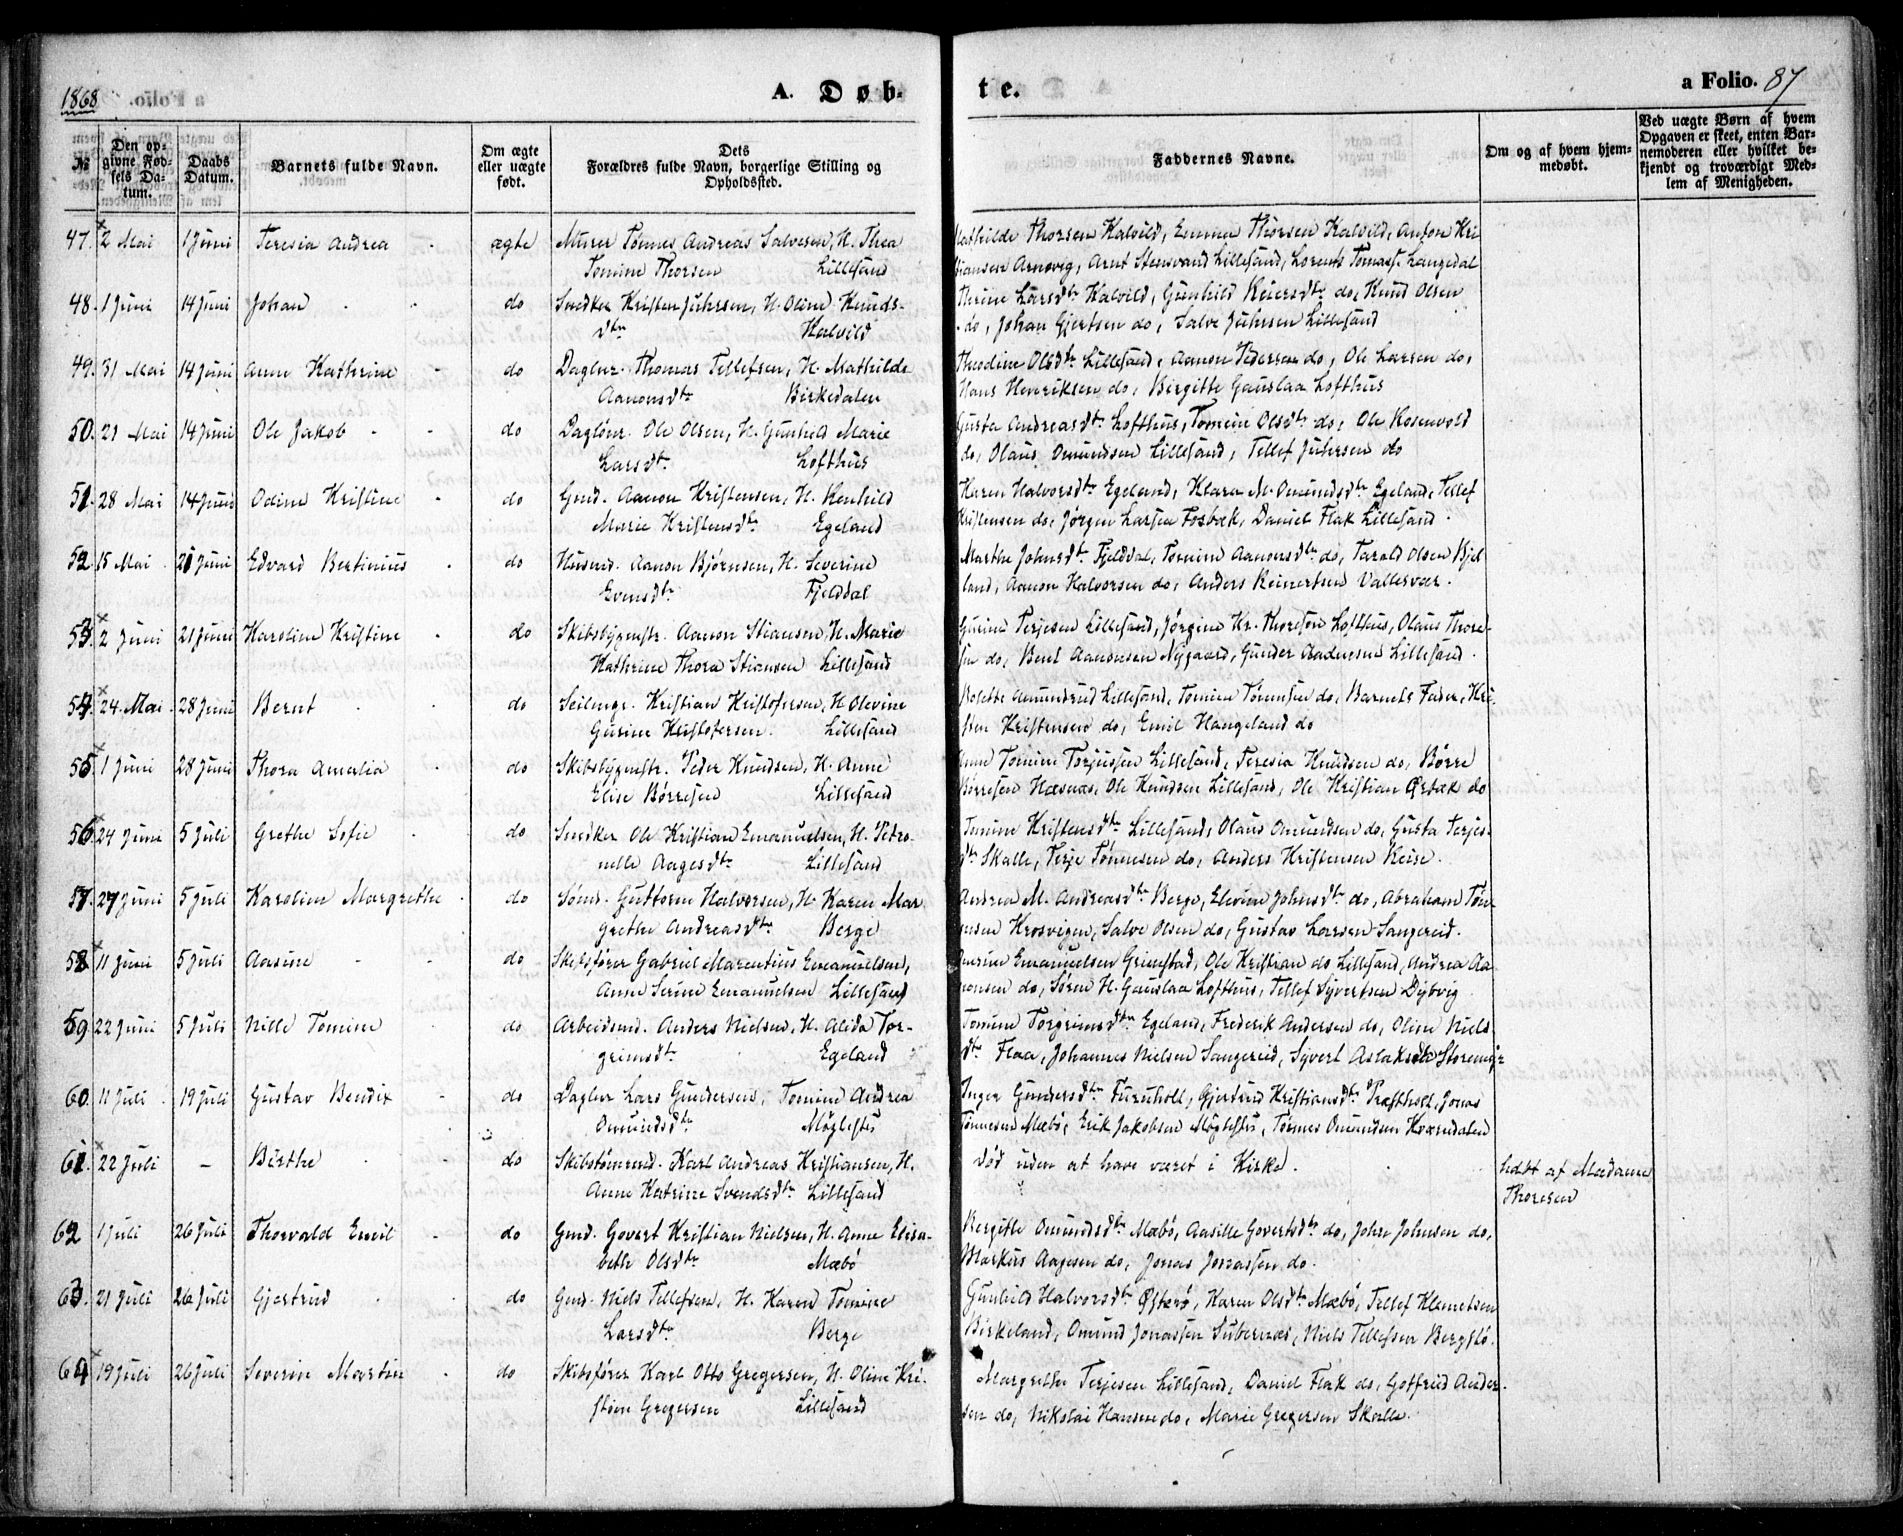 1868
A. Døb-
te.
a Folio. 87
№
Den op-
givne Fød-
sels Da-
tum.
Daabs
Datum.
Barnets fulde Navn.
Om ægte
eller uægte
født.
Dets
Forældres fulde Navn, borgerlige Stilling og
Opholdssted.
Faddernes Navne.
Om og af hvem hjem-
medøbt.
Ved uægte Børn af hvem
Opgaven er skeet, enten Bar-
nemoderen eller hvilket be-
kjendt og troværdigt Med-
lem af Menigheden.
47. 2 Mai 1 Juni Teresia Andrea ægte Murer Tønnes Andreas Salvesen, H. Thea
Tomine Thorsen Lillesand
Mathilde Thorsen Kalvild, Emma Thorsen Kalvild, Anton Kri
stiansen Arnevig, Arnt Stensvand Lillesand, Lorents Tomass. Langedal
48. 1 Juni 14 Juni Johan do Snedker Kristen Juhrsen, H. Oline Knuds-
dtr Kalvild
Thrine Larsdtr Kalvild, Gunhild Reiersdtr do, Knud Olsen
do, Johan Gjertsen do, Salve Juhrsen Lillesand
49. 31 Mai 14 Juni Anne Kathrine do Daglnr. Thomas Tellefsen, H. Mathilde
Aanonsdtr Birkedalen
Theodine Olsdtr Lillesand, Aanon Pedersen do, Ole Larsen do,
Hans Henriksen do, Birgitte Gauslaa Lofthus
50. 21 Mai 14 Juni Ole Jakob do Daglönr. Ole Olsen, H. Gunhild Marie
Larsdtr. Lofthus
Gusta Andreasdtr Lofthus, Tomine Olsdtr do, Ole Rosenvold
do, Olaus Omundsen Lillesand, Tellef Juhrsen do
51. 28 Mai 14 Juni Odine Kristine do Gmd. Aanon Kristensen, H. Renhild
Marie Kristensdtr Egeland
Karen Halvorsdtr Egeland, Klara M. Omundsdtr Egeland, Tellef
Kristensen do, Jørgen Larsen Fosbæk, Daniel Flak Lillesand.
52. 15 Mai 21 Juni Edvard Bertinius do Husmd. Aanon Bjørnsen, H. Severine
Evensdtr Fjelddal
Marthe Johnsdtr Fjelddal, Tomine Aanonsdtr do, Tarald Olsen Bjel
land, Aanon Halvorsen do, Anders Reinertsen Vallesvær.
53. 2 Juni 21 Juni Karoline Kristine do Skibsbygmstr. Aanon Stiansen, H. Marie
Kathrine Thora Stiansen Lillesand
Gurine Terjesen Lillesand, Jørgine Kr. Thoresen Lofthus, Olaus Thore-
sen do, Bent Aanonsen Nygaard, Gunder Andersen Lillesand.
54. 24 Mai 28 Juni Bernt do Seilmgr. Kristian Kristofersen, H Olevine
Gurine Kristofersen. Lillesand
Bolette Amundrud Lillesand, Tomine Tønnesen do, Barnets Fader, Kri-
sten Kristensen do, Emil Hangeland do
55. 1 Juni 28 Juni Thora Amalia do Skibsbygmstr. Peder Knudsen, H. Anne
Elise Børresen Lillesand
Anne Tomine Torjussen Lillesand, Teresia Knudsen do, Børre
Børresen Næsnæs, Ole Knudsen Lillesand, Ole Kristian Ørbæk do
56. 24 Juni 5 Juli Grethe Sofie do Snedker Ole Kristian Emanuelsen, H. Petro-
nelle Aagesdtr Lillesand
Tomine Kristensdtr Lillesand, Olaus Omundsen do, Gusta Terjes-
dtr Skalle, Terje Tønnesen do, Anders Kristensen Reise.
57. 27 Juni 5 Juli Karoline Margrethe do Sømd. Guttorm Halvorsen, H. Karen Mar
grethe Andreasdtr Berge
Andrea M. Andreasdtr Berge, Elevine Johnsdtr do, Abraham Tøn-
nesen Krosvigen, Salve Olsen do, Gustav Larsen Sangereid.
58. 11 Juni 5 Juli Aasine do Skibsfører Gabriel Marentius Emanuelsen,
Anne Serine Emanuelsen Lillesand
Emanuelsen Grimstad, Ole Kristian do Lillesand, Andrea Aa-
nonsen do, Søren H. Gauslaa Lofthus, Tellef Syvertsen Dybvig
59. 22 Juni 5 Juli Nille Tomine do Arbeidsmd. Anders Nielsen, H. Alida Tor-
grimsdtr Egeland
Tomine Torgrimsdtr Egeland, Frederik Andersen do, Oline Niels-
dtr Flaa, Johannes Nielsen Sangereid, Syvert Aslaksen
60. 11 Juli 19 Juli Gustav Bendix do Daglnr Lars Gundersen, Tomine Andrea
Omundsdtr Møglestu
Inger Gundersdtr Furuholt, Gjertrud Kristiansdtr Præstholt, Jonas
Tønnesen Mæbø, Erik Jakobsen Møglestu, Tønnes Omundsen Kværndalen
61. 22 Juli - Birthe do Skibstømrmd. Karl Andreas Kristiansen, H.
Anne Katrine Svendsdtr Lillesand
Død uden at have været i Kirke.
hdbt af Madame
Thoresen
62 1 Juli 26 Juli Thorvald Emil do Gmd. Govert Kristian Nielsen, H. Anne Elisa-
beth Olsdtr Mæbø
Bergitte Omundsdtr Mæbø, Aasille Govertsdtr do, John Johnsen do,
Markus Aagesen do, Jonas Jonassen do.
63. 21 Juli 26 Juli Gjertrud do Gmd. Niels Tellefsen, H. Karen Tomine
Larsdtr. Berge
Gunhild Halvorsdtr Østerø, Karen Olsdtr Mæbø, Tellef Klemetsen
Birkeland, Omund Jonassen Subernæs, Niels Tellefsen Bergstø.
64 19 Juli 26 Juli Severin Martin do Skibsfører Karl Otto Gregersen, H. Oline Kri-
stine Gregersen Lillesand
Margrethe Terjesen Lillesand, Daniel Flak do, Gotfried Ander-
sen do, Nikolai Hansen do, Marie Gregersen Skalle.